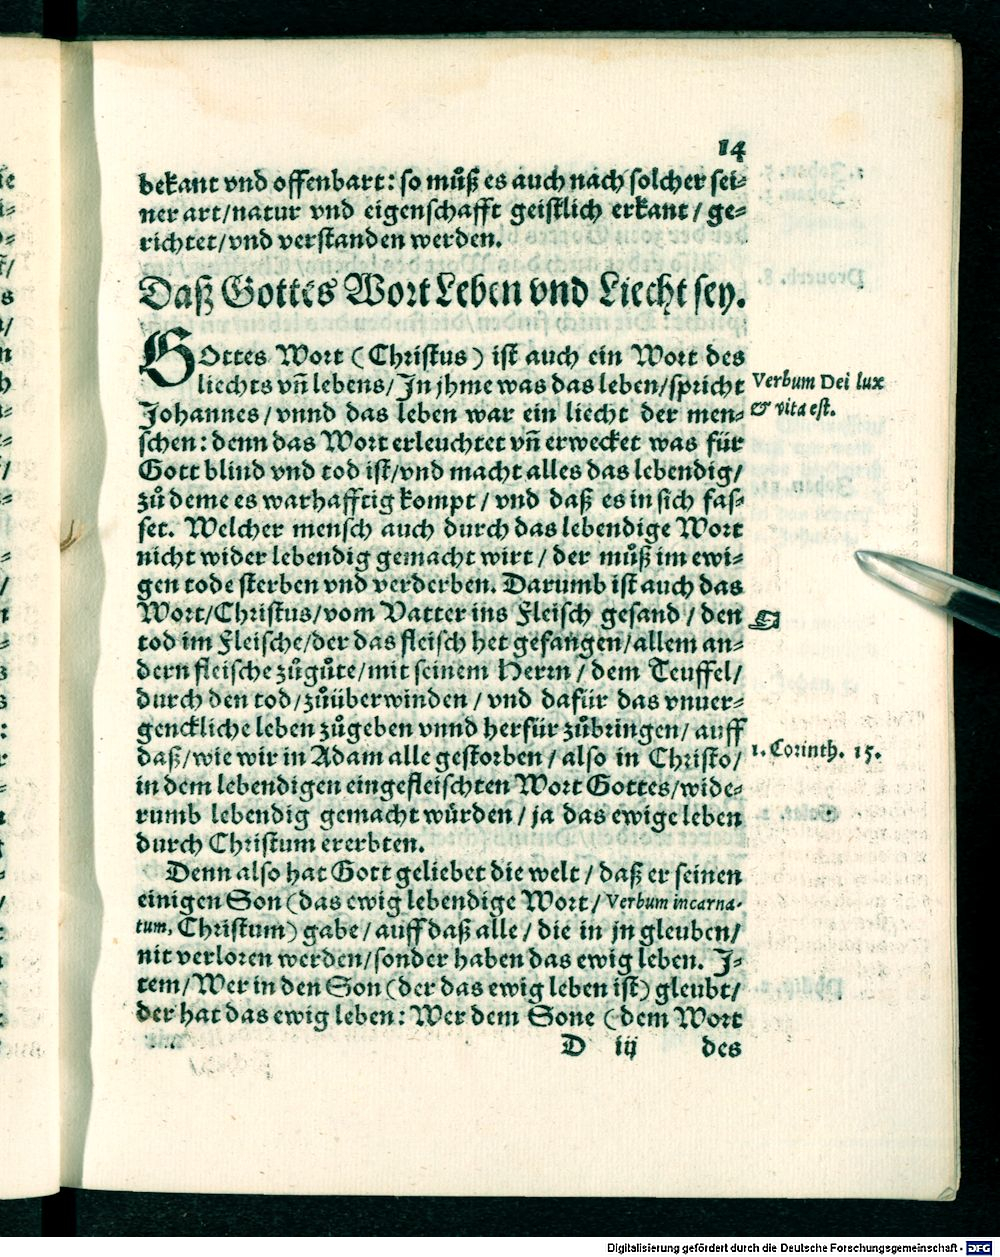 14
bekant vnd offenbart: so můß es auch nach solcher sei-
ner art/natur vnd eigenschafft geistlich erkant/ ge-
richtet/vnd verstanden werden.
Daß Gottes Wort Leben vnd Liecht sey.
GOttes Wort (Christus) ist auch ein Wort des
liechts vñ lebens/ In jhme was das leben/spricht
Verbum Dei lux
Johannes/ vnnd das leben war ein liecht der men-
& vita est.
schen: denn das Wort erleuchtet vñ erwecket was für
Gott blind vnd tod ist/vnd macht alles das lebendig/
zů deme es warhafftig kompt/ vnd daß es in sich fas-
set. Welcher mensch auch durch das lebendige Wort
nicht wider lebendig gemacht wirt/ der můß im ewi-
gen tode sterben vnd verderben. Darumb ist auch das
Wort/Christus/vom Vatter ins Fleisch gesand/ den
☞
tod im Fleische/der das fleisch het gefangen/allem an-
dern fleische zůgůte/mit seinem Herrn/ dem Teuffel/
durch den tod/zůüberwinden/ vnd dafür das vnuer-
genckliche leben zůgeben vnnd herfür zůbringen/ auff
daß/wie wir in Adam alle gestorben/ also in Christo/
1. Corinth. 15.
in dem lebendigen eingefleischten Wort Gottes/wide-
rumb lebendig gemacht würden/ ja das ewige leben
durch Christum ererbten.
Denn also hat Gott geliebet die welt/ daß er seinen
einigen Son (das ewig lebendige Wort/ Verbum incarna-
tum, Christum) gabe/ auff daß alle/ die in jn gleuben/
nit verloren werden/sonder haben das ewig leben. J-
tem/ Wer in den Son (der das ewig leben ist) gleubt/
der hat das ewig leben: Wer dem Sone (dem Wort
D iij des
Digitalisierung gefördert durch die Deutsche Forschungsgemeinschaft - DFG